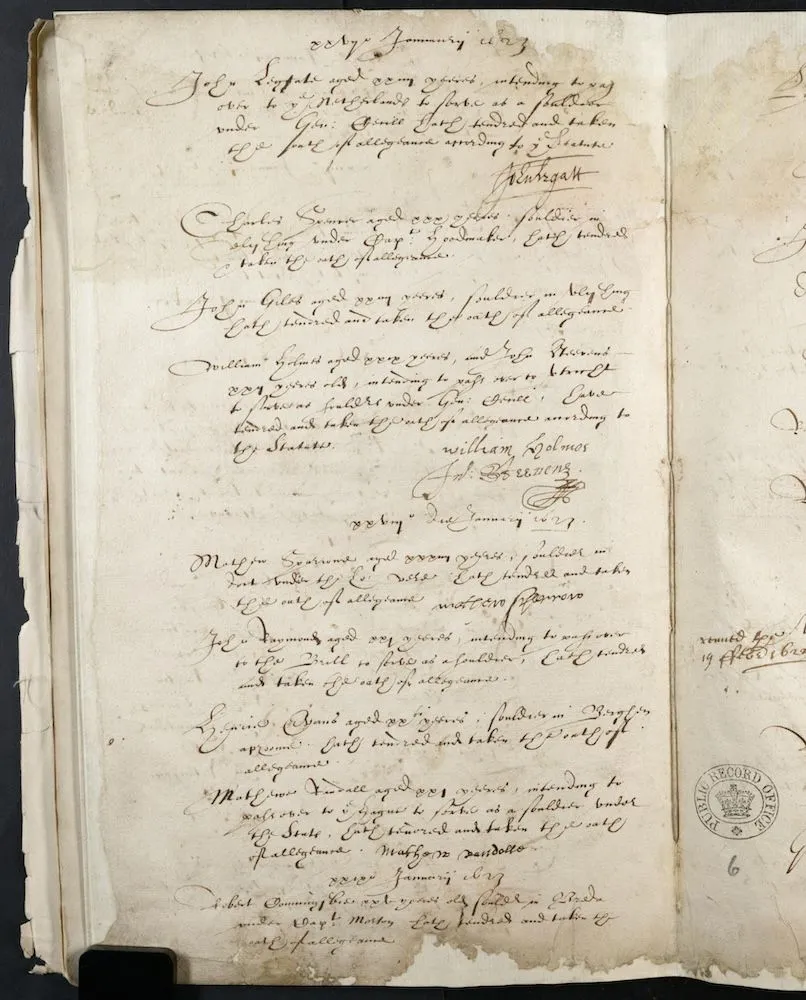 January 1623
John Leggate aged xxiiij yeeres, intending to pass
over to ye Netherlands to serve as a souldier
under Gen: Cecill hath tendred and taken
the oath of allegeance according to ye Statute
Charles Spencer aged xxx yeeres souldier in
under Capt: hath tendred
& taken the oath of allegeance
John Giles aged yeeres, souldier in Vlishing
hath tendred and taken the oath of allegeance
William Holmes aged xxix yeeres, and John Steevens
yeeres old, intending to passe over to Utrecht
to serve as under Gen: Cecill, have
tendred and taken the oath of allegiance according to
the Statute.
william Holmes
Jn: Steevens
die January 1623.
Mathew Sparrowe aged yeeres, souldier in
Dort under the Lo: Vere hath tendred and taken
the oath of allegeance mathew Sparrow
John Raymond aged xxj yeeres, intending to passe over
to the Brill to serve as a souldier, hath tendred
and taken the oath of allegeance.
Henrie Evans aged yeeres, souldier in Berghen
hath tendred and taken the oath of
allegeance
Mathewe Randall aged xxj yeeres, intending to
passe over to ye Hague to serve as a souldier under
the State, hath tendred and taken the oath
of allegeance. Mathew randolle
January 1623
Robert yeeres old in Breda
under Capt: Morton hath tendred and taken the
oath of allegeance
19 ffebr: 162
PUBLIC RECORD OFFICE
6